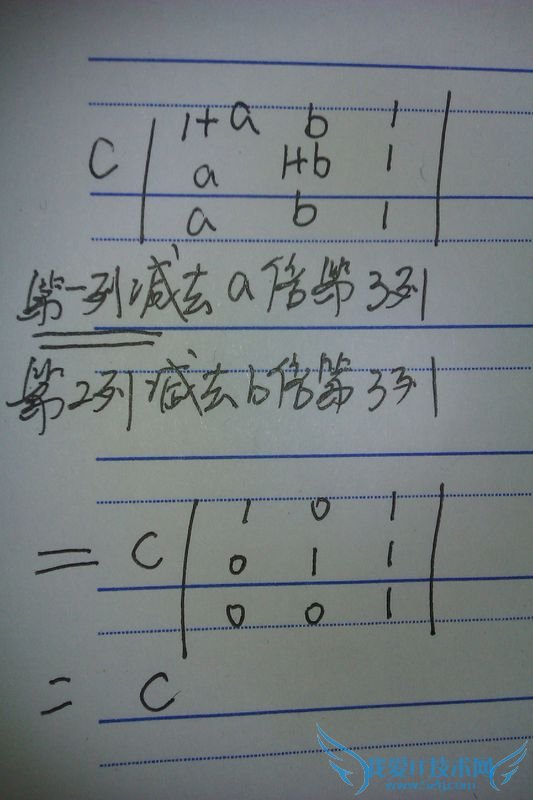 C | 1+a b 1 |
| a 1+b 1 |
| a b 1 |
第一列减去a倍第3列
第2列减去b倍第3列
= C | 1 0 1 |
| 0 1 1 |
| 0 0 1 |
= C
我爱IT技术网